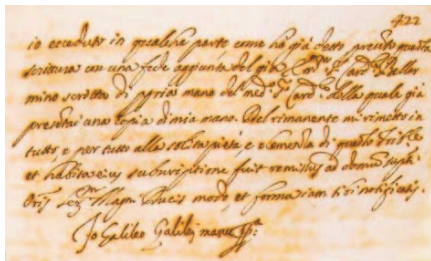 422
io ecceduto in qualche parte come ho già detto presento questa
scrittura con una fede aggiunta del già Em.mo S.r Card.le Bellar
mino scritta di propria mano del med.mo S.r Card.le della quale già
presentai una copia di mia mano. Del rimanente mi rimetto in
tutto, e per tutto alla solita pietà e clemenza di questo Trib.le
et habita eius subscriptione fuit remissus ad domum supti
Oris Ser.mi Magni Ducis modo, et forma iam sibi notificatis.
Io Galileo Galilei manu pp.a